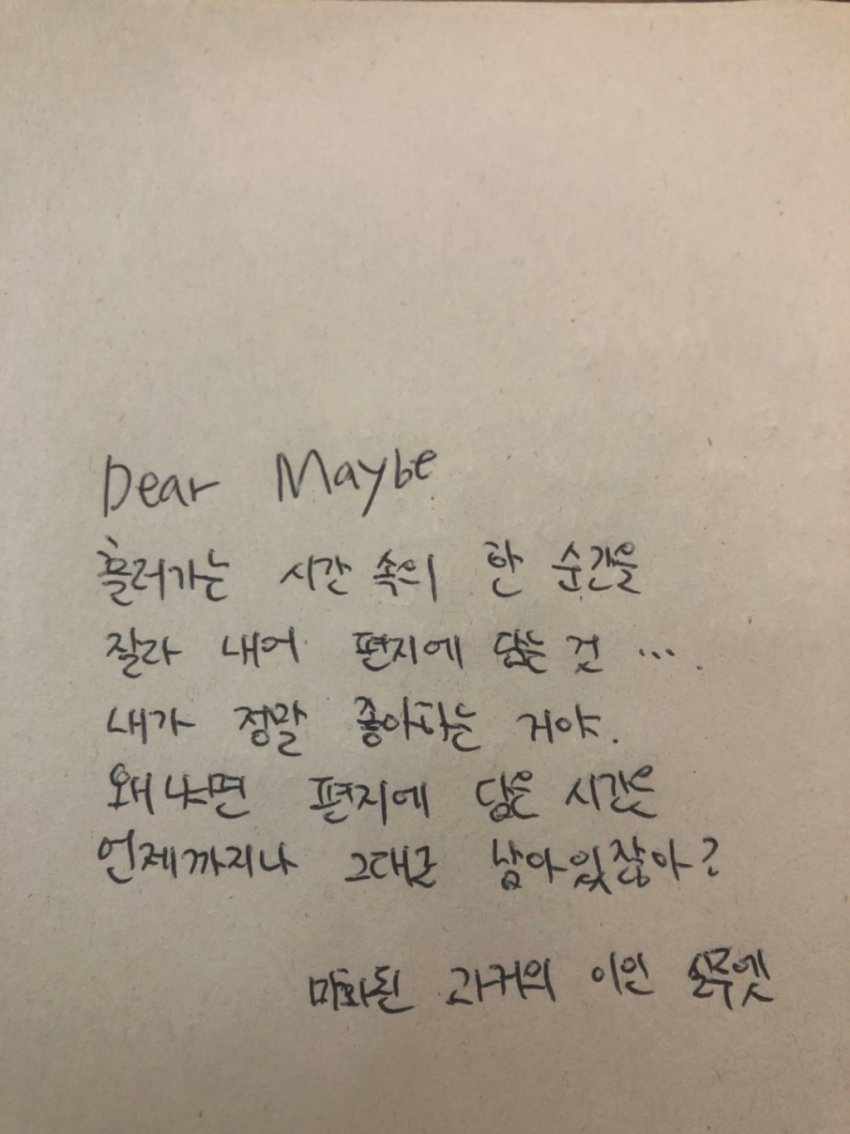 Dear Maybe
흘러가는 시간 속의 한 순간을
잘라 내어 편지에 담는 것 ...
내가 정말 좋아하는 거야.
왜냐면 편지에 담은 시간은
언제까지나 그대로 남아있잖아?
미화된 과거의 이인 실루엣